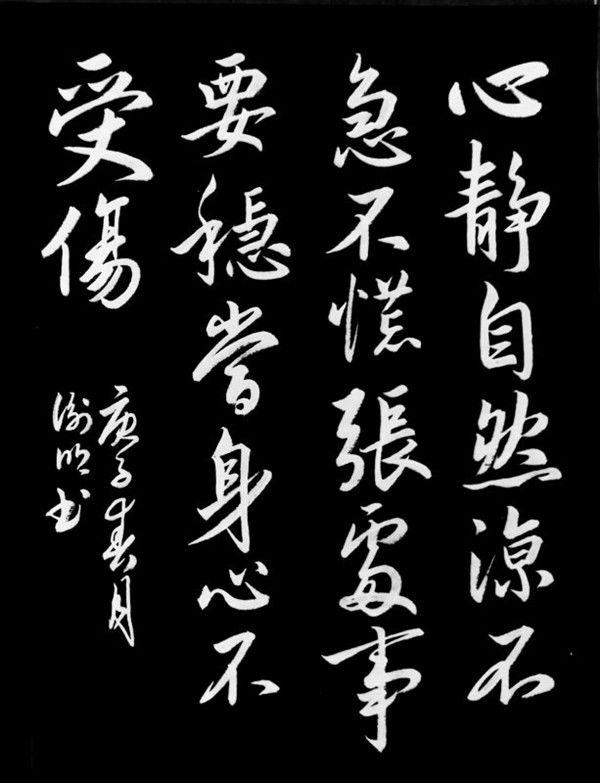 心静自然涼不
急不慌張處事
要穩當身心不
受傷
庚子春月
谢明书